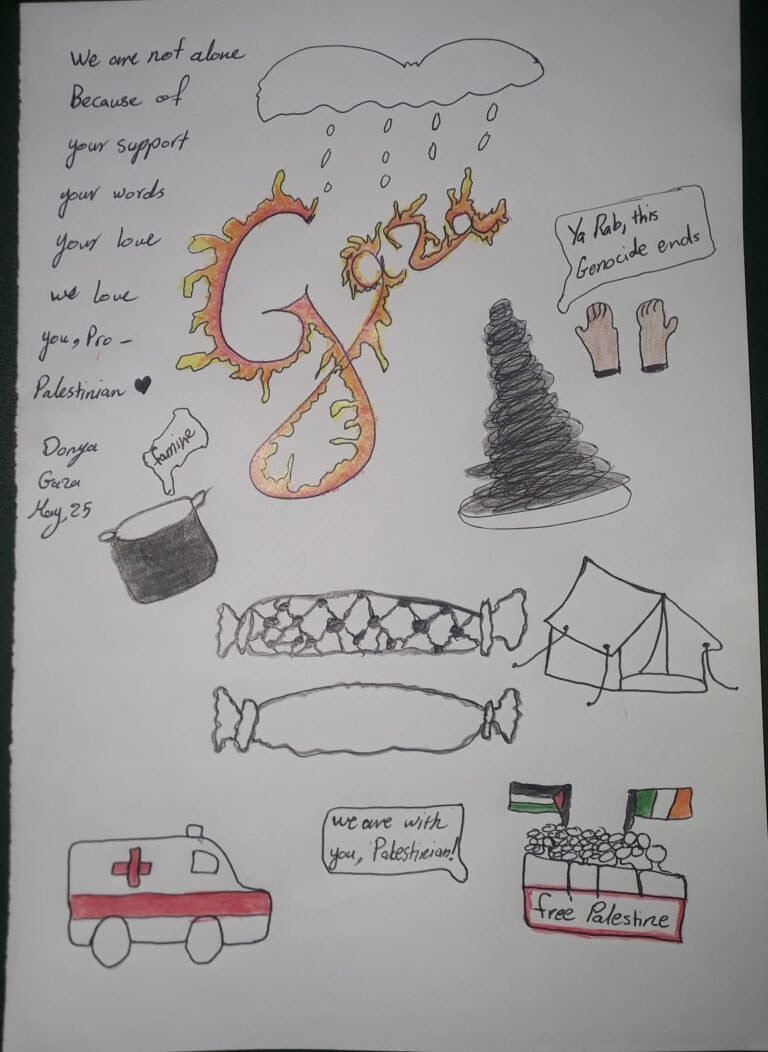 We are not alone
Because of
your support
your words
your love
we love
you, Pro-
Palestinian
Donya
Gaza
May, 25
Gaza
Ya Rab, this
Genocide ends
famine
we are with
you, Palestinian!
free Palestine